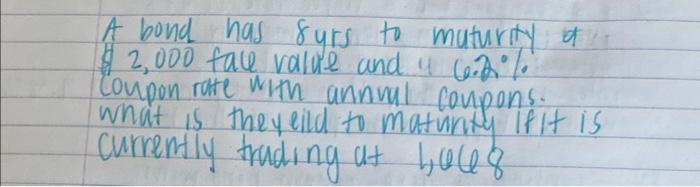 A bond has 8yrs to maturity, a
$ 2,000 face value and a 6.2%
coupon rate with annual coupons.
what is the yeild to maturity if it is
currently trading at